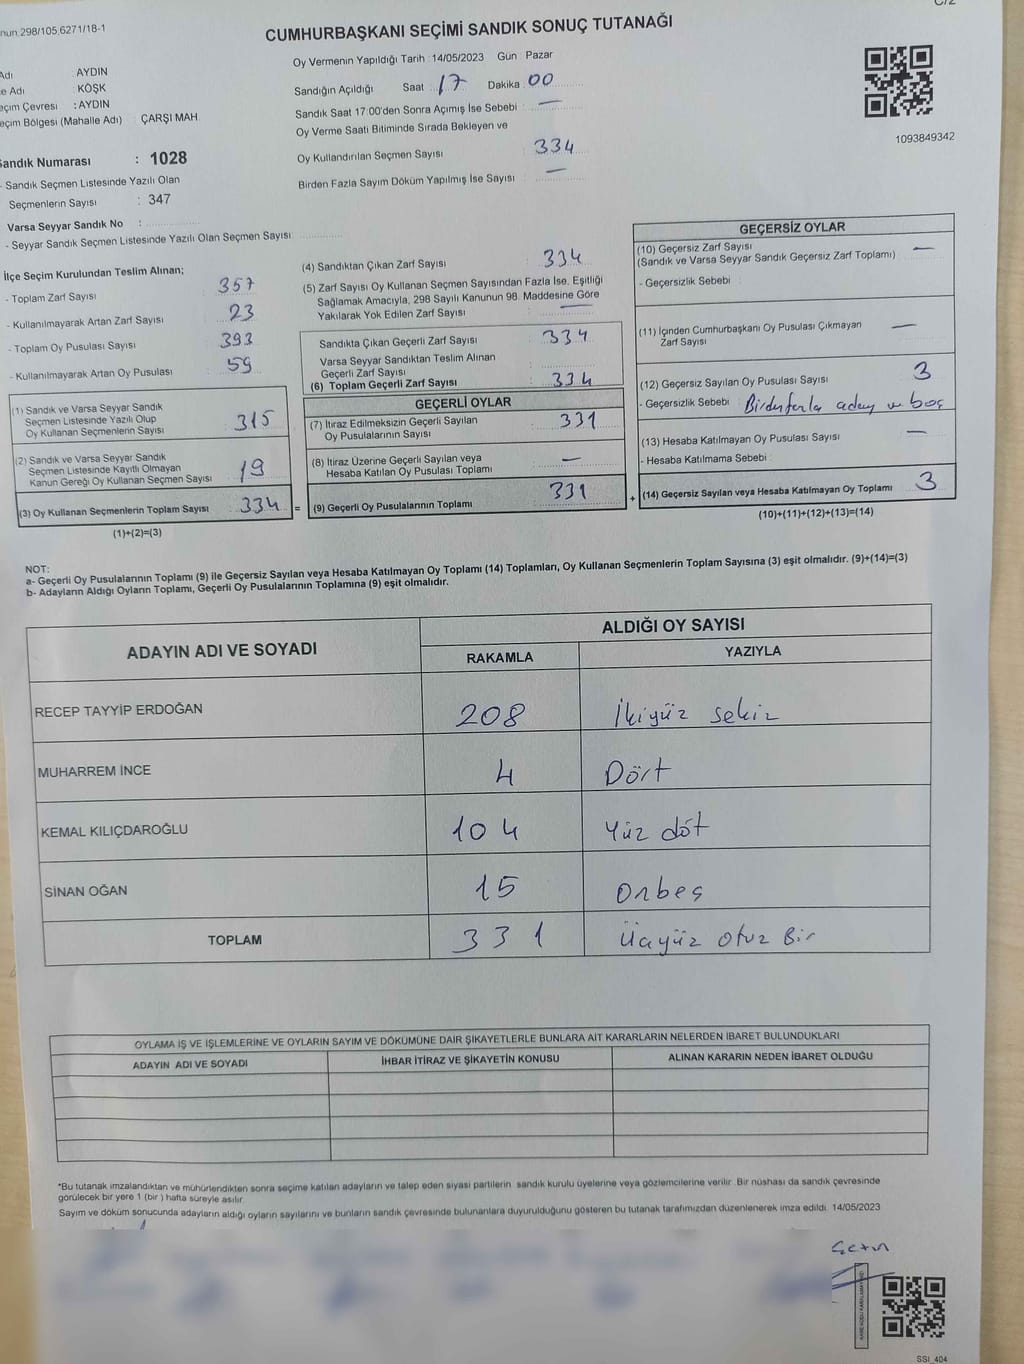 298/105,6271/18-1
CUMHURBAŞKANI SEÇİMİ SANDIK SONUÇ TUTANAĞI
Oy Vermenin Yapıldığı Tarih : 14/05/2023 Gün Pazar
Sandığın Açıldığı Saat 17 Dakika 00
Sandık Saat 17:00'den Sonra Açımış İse Sebebi : —
Oy Verme Saati Bitiminde Sırada Bekleyen ve
Oy Kullandırılan Seçmen Sayısı : 334
Birden Fazla Sayım Döküm Yapılmış İse Sayısı : —
Adı : AYDIN
Adı : KÖŞK
Seçim Çevresi : AYDIN
Seçim Bölgesi (Mahalle Adı) : ÇARŞI MAH.
Sandık Numarası : 1028
- Sandık Seçmen Listesinde Yazılı Olan
Seçmenlerin Sayısı : 347
Varsa Seyyar Sandık No :
- Seyyar Sandık Seçmen Listesinde Yazılı Olan Seçmen Sayısı:
1093849342
İlçe Seçim Kurulundan Teslim Alınan;
- Toplam Zarf Sayısı : 357
- Kullanılmayarak Artan Zarf Sayısı : 23
- Toplam Oy Pusulası Sayısı : 393
- Kullanılmayarak Artan Oy Pusulası : 59
(1) Sandık ve Varsa Seyyar Sandık
Seçmen Listesinde Yazılı Olup
Oy Kullanan Seçmenlerin Sayısı : 315
(2) Sandık ve Varsa Seyyar Sandık
Seçmen Listesinde Kayıtlı Olmayan
Kanun Gereği Oy Kullanan Seçmen Sayısı : 19
(3) Oy Kullanan Seçmenlerin Toplam Sayısı : 334 =
(1)+(2)=(3)
(4) Sandıktan Çıkan Zarf Sayısı : 334
(5) Zarf Sayısı Oy Kullanan Seçmen Sayısından Fazla İse, Eşitliği
Sağlamak Amacıyla, 298 Sayılı Kanunun 98. Maddesine Göre
Yakılarak Yok Edilen Zarf Sayısı : —
Sandıkta Çıkan Geçerli Zarf Sayısı : 334
Varsa Seyyar Sandıktan Teslim Alınan
Geçerli Zarf Sayısı :
(6) Toplam Geçerli Zarf Sayısı : 334
GEÇERLİ OYLAR
(7) İtiraz Edilmeksizin Geçerli Sayılan
Oy Pusulalarının Sayısı : 331
(8) İtiraz Üzerine Geçerli Sayılan veya
Hesaba Katılan Oy Pusulası Toplamı : —
(9) Geçerli Oy Pusulalarının Toplamı : 331 +
GEÇERSİZ OYLAR
(10) Geçersiz Zarf Sayısı : —
(Sandık ve Varsa Seyyar Sandık Geçersiz Zarf Toplamı)
- Geçersizlik Sebebi :
(11) İçinden Cumhurbaşkanı Oy Pusulası Çıkmayan
Zarf Sayısı : —
(12) Geçersiz Sayılan Oy Pusulası Sayısı : 3
- Geçersizlik Sebebi : Birdenfazla aday ve boş
(13) Hesaba Katılmayan Oy Pusulası Sayısı : —
- Hesaba Katılmama Sebebi :
(14) Geçersiz Sayılan veya Hesaba Katılmayan Oy Toplamı : 3
(10)+(11)+(12)+(13)=(14)
NOT:
a- Geçerli Oy Pusulalarının Toplamı (9) ile Geçersiz Sayılan veya Hesaba Katılmayan Oy Toplamı (14) Toplamları, Oy Kullanan Seçmenlerin Toplam Sayısına (3) eşit olmalıdır. (9)+(14)=(3)
b- Adayların Aldığı Oyların Toplamı, Geçerli Oy Pusulalarının Toplamına (9) eşit olmalıdır.
ADAYIN ADI VE SOYADI
ALDIĞI OY SAYISI
RAKAMLA YAZIYLA
RECEP TAYYİP ERDOĞAN 208 İkiyüz sekiz
MUHARREM İNCE 4 Dört
KEMAL KILIÇDAROĞLU 104 Yüz döt
SİNAN OĞAN 15 Onbeş
TOPLAM 331 Üçyüz otuz Bir
OYLAMA İŞ VE İŞLEMLERİNE VE OYLARIN SAYIM VE DÖKÜMÜNE DAİR ŞİKAYETLERLE BUNLARA AİT KARARLARIN NELERDEN İBARET BULUNDUKLARI
ADAYIN ADI VE SOYADI İHBAR İTİRAZ VE ŞİKAYETİN KONUSU ALINAN KARARIN NEDEN İBARET OLDUĞU
*Bu tutanak imzalandıktan ve mühürlendikten sonra seçime katılan adayların ve talep eden siyasi partilerin sandık kurulu üyelerine veya gözlemcilerine verilir. Bir nüshası da sandık çevresinde
görülecek bir yere 1 (bir ) hafta süreyle asılır.
Sayım ve döküm sonucunda adayların aldığı oyların sayılarını ve bunların sandık çevresinde bulunanlara duyurulduğunu gösteren bu tutanak tarafımızdan düzenlenerek imza edildi. 14/05/2023
Çetin
SSİ_404